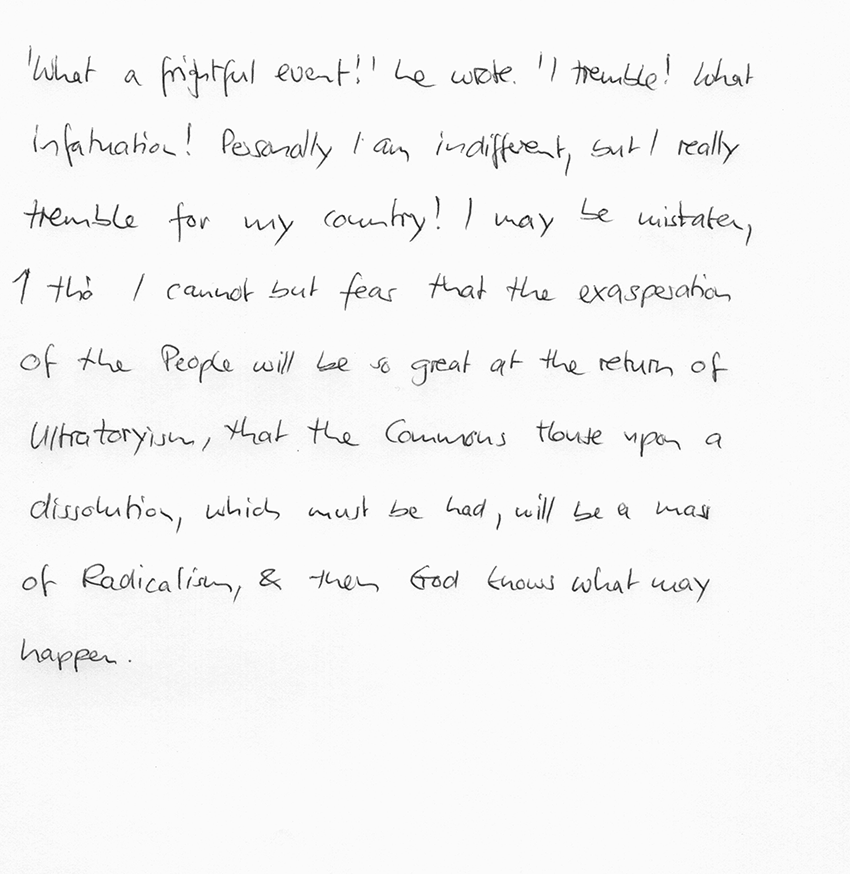 'What a frightful event!' he wrote. 'I tremble! What
infatuation! Personally I am indifferent, but I really
tremble for my country! I may be mistaken,
tho' I cannot but fear that the exasperation
of the People will be so great at the return of
Ultratoryism, that the Commons House upon a
dissolution, which must be had, will be a mass
of Radicalism, & then God knows what may
happen.